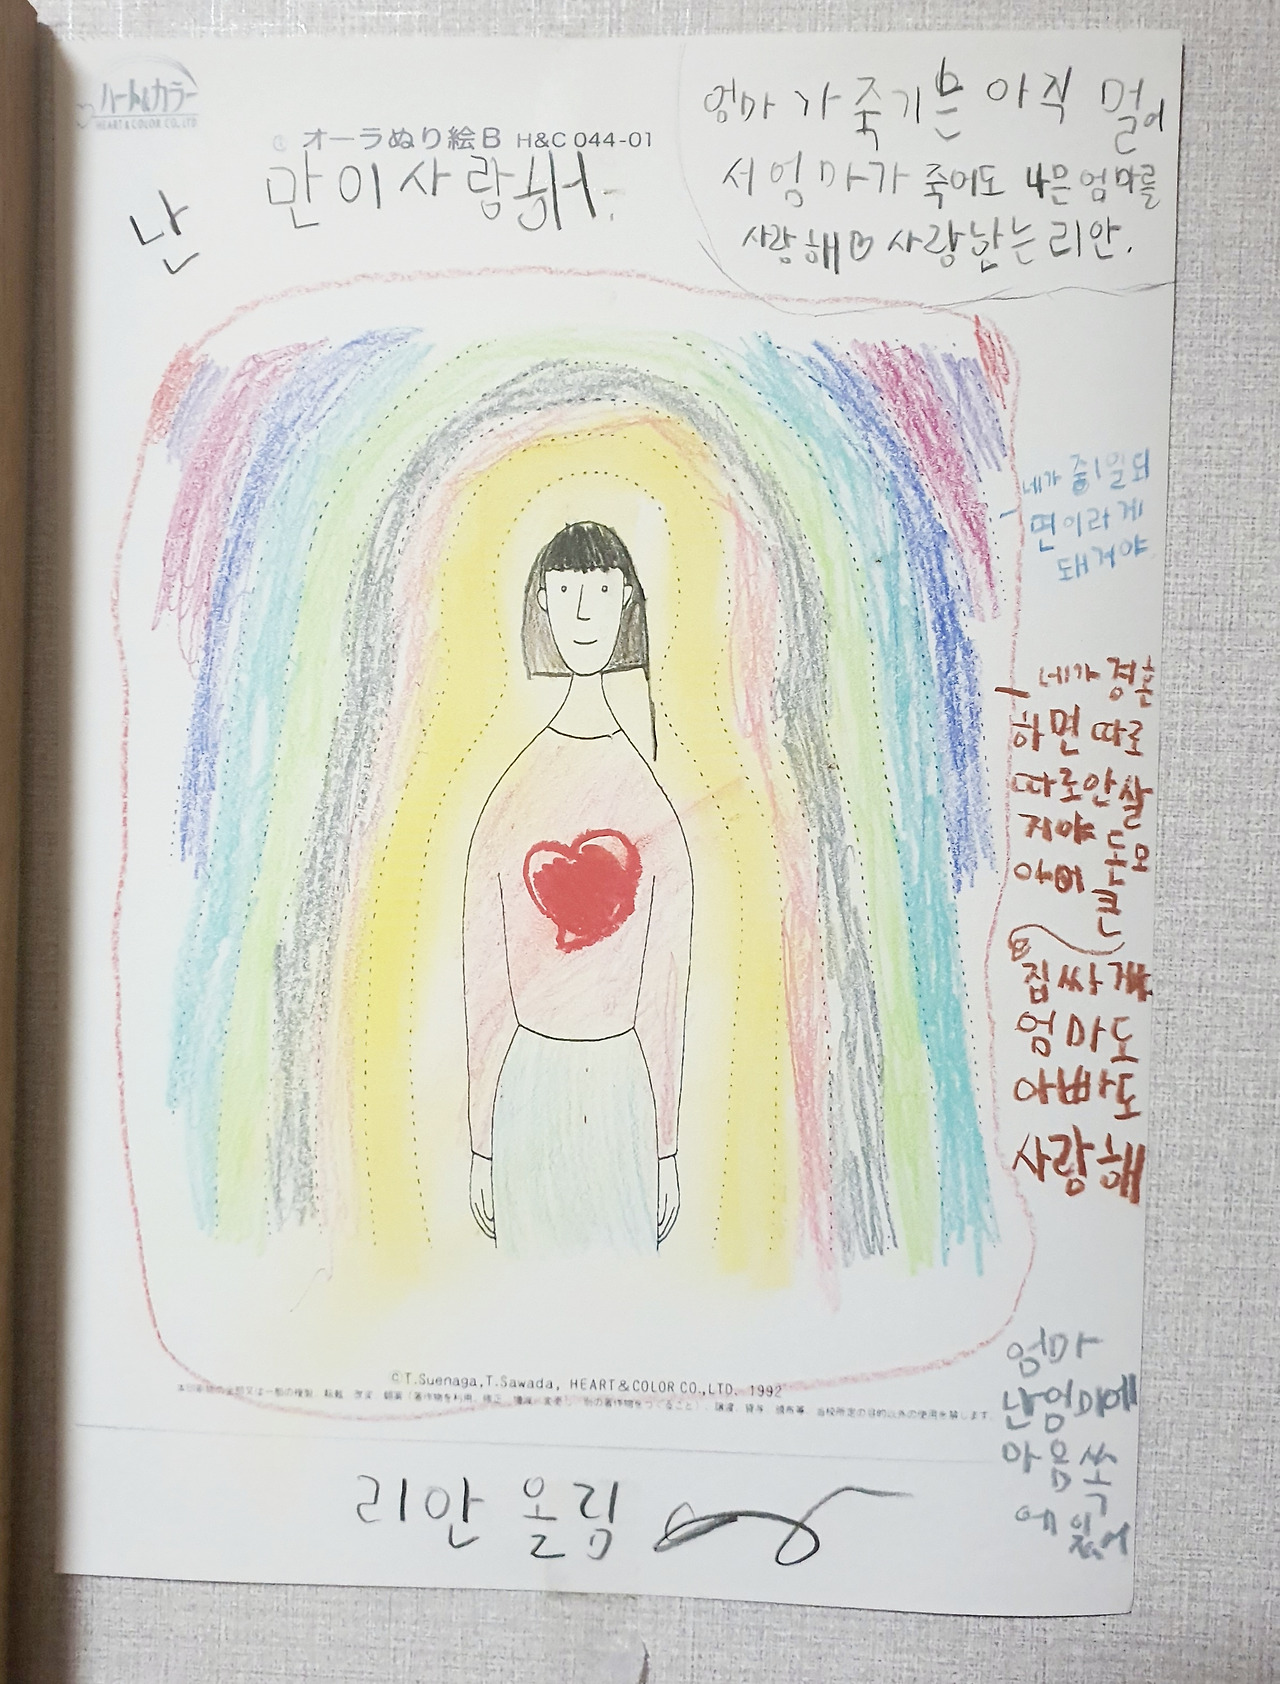 ハート&カラー
HEART & COLOR CO., LTD
オーラぬり絵B H&C 044-01
난 만이사랑해.
엄마가죽기는 아직 멀어
서 엄마가 죽어도 나은엄마를
사랑해♡ 사랑한는 리안.
네가
면이라게
돼거야
네가 경혼
하면 따로
따로안살
지야
큰
집싸게
엄마도
아빠도
사랑해
©T.Suenaga,T.Sawada, HEART&COLOR CO.,LTD. 1992
엄마
난엄마에
마음쏙
에있어
리안 올림